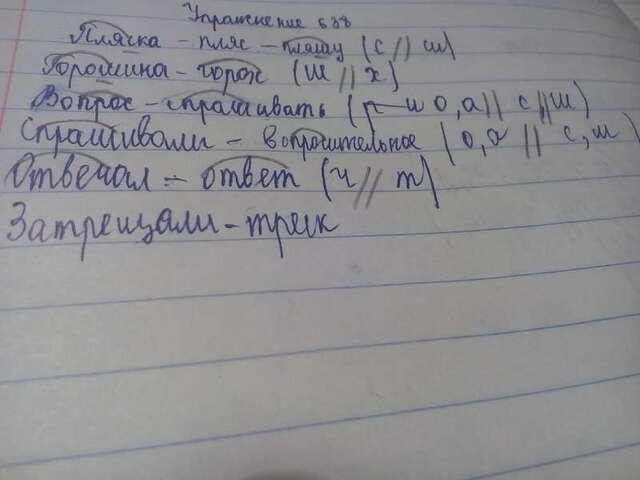 Упражнение 638
Пляска - пляс - пляшу (с // ш)
Горошина - горох (ш // х)
Вопрос - спрашивать ( и о, а // с // ш)
Спрашивали - вопросительное (о, а // с, ш)
Отвечал - ответ (ч // т)
Затрещали - треск